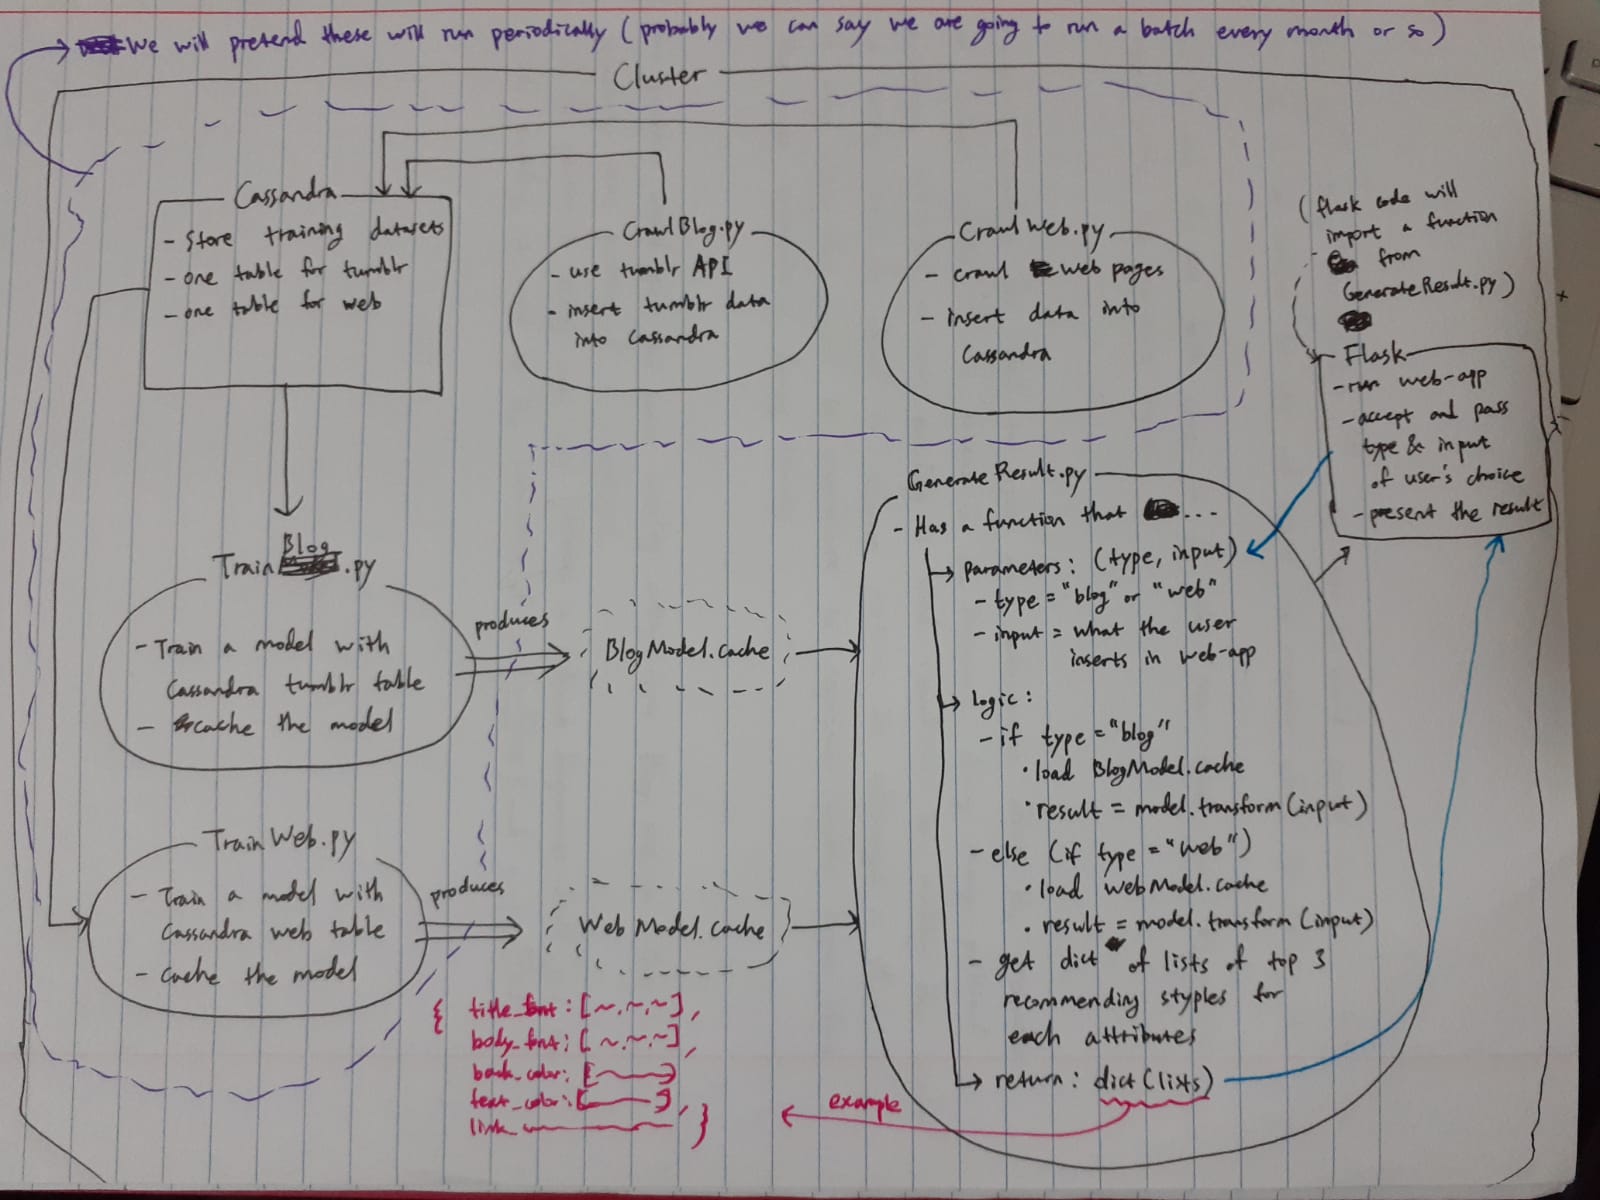 We will pretend these will run periodically (probably we can say we are going to run a batch every month or so)
Cluster
Cassandra
- Store training datasets
- one table for tumblr
- one table for web
CrawlBlog.py
- use tumblr API
- insert tumblr data
into Cassandra
CrawlWeb.py
- crawl web pages
- insert data into
Cassandra
(flask code will
import a function
from
GenerateResult.py)
Flask
- run web-app
- accept and pass
type & input
of user's choice
- present the result
Train Blog.py
- Train a model with
Cassandra tumblr table
- cache the model
produces
BlogModel.cache
TrainWeb.py
- Train a model with
Cassandra web table
- Cache the model
produces
WebModel.cache
GenerateResult.py
- Has a function that ...
parameters: (type, input)
- type = "blog" or "web"
- input = what the user
inserts in web-app
logic:
- if type = "blog"
· load BlogModel.cache
· result = model.transform(input)
- else (if type = "web")
· load WebModel.cache
· result = model.transform(input)
- get dict of lists of top 3
recommending styples for
each attributes
return: dict(lists)
example
{ title_font: [~,~,~],
body_font: [~,~,~],
back_color: [ ]
text_color: [ ],
link_ }